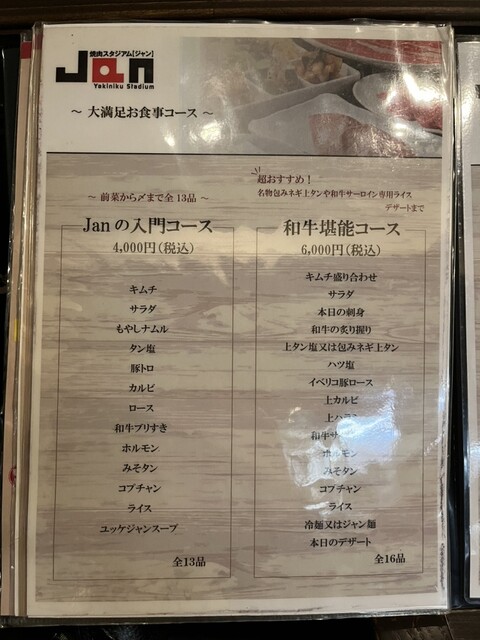 焼肉スタジアム[ジャン]
Jan
Yakiniku Stadium
～ 大満足お食事コース ～
～ 前菜から〆まで全13品 ～
Janの入門コース
4,000円(税込)
キムチ
サラダ
もやしナムル
タン塩
豚トロ
カルビ
ロース
和牛ブリすき
ホルモン
みそタン
コプチャン
ライス
ユッケジャンスープ
全13品
超おすすめ!
名物包みネギ上タンや和牛サーロイン専用ライス
デザートまで
和牛堪能コース
6,000円(税込)
キムチ盛り合わせ
サラダ
本日の刺身
和牛の炙り握り
上タン塩又は包みネギ上タン
ハツ塩
イベリコ豚ロース
上カルビ
上ハラミ
和牛サ
ホルモン
みそタン
コプチャン
ライス
冷麺又はジャン麺
本日のデザート
全16品